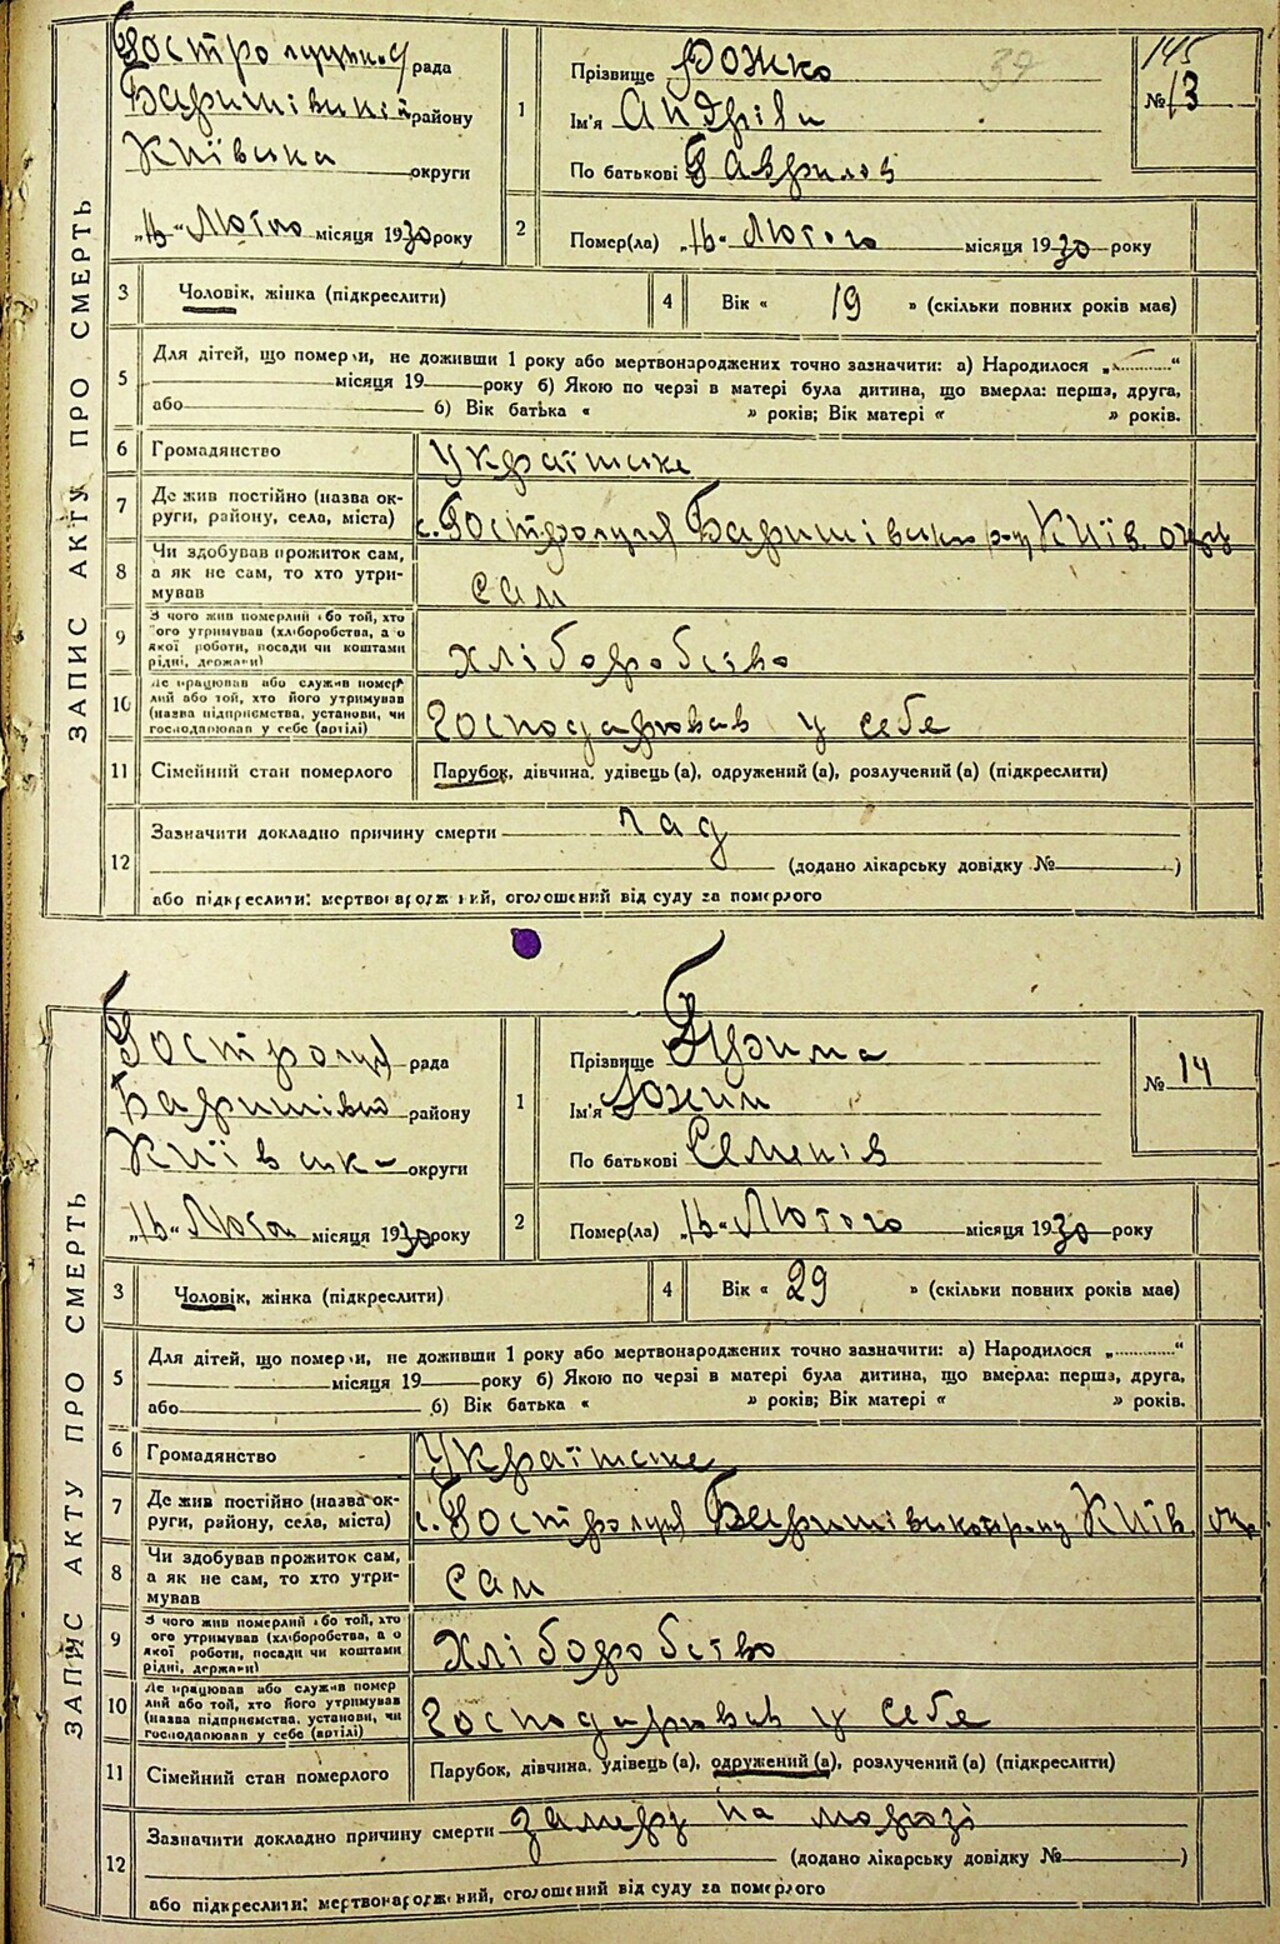 ЗАПИС АКТУ ПРО СМЕРТЬ
рада
Баришівський району
Київська округи
"16" Лютого місяця 1930 року
1
Прізвище Божко
37
Ім'я Андрій
По батькові Гаврилов
145
№ 13
2
Помер(ла) "16" Лютого місяця 1930 року
3 Чоловік, жінка (підкреслити)
4 Вік « 19 » (скільки повних років має)
5 Для дітей, що померли, не доживши 1 року або мертвонароджених точно зазначити: а) Народилося „............“
місяця 19 року б) Якою по черзі в матері була дитина, що вмерла: перша, друга,
або б) Вік батька « » років; Вік матері « » років.
6 Громадянство Українське
7 Де жив постійно (назва ок-
руги, району, села, міста) с. Гостролуччя Баришівського р-ну Київ. окр
8 Чи здобував прожиток сам,
а як не сам, то хто утри-
мував сам
9 З чого жив померлий або той, хто
його утримував (хліборобства, а о
якої роботи, посади чи коштами
рідні, держави) хліборобство
10 Де працював або служив помер
лий або той, хто його утримував
(назва підприємства, установи, чи
господарював у себе (артілі) господарював у себе
11 Сімейний стан померлого Парубок, дівчина, удівець (а), одружений (а), розлучений (а) (підкреслити)
12 Зазначити докладно причину смерти
(додано лікарську довідку № )
або підкреслити: мертвонароджений, оголошений від суду за померлого
ЗАПИС АКТУ ПРО СМЕРТЬ
Гостролуч рада
Баришівсь району
Київська округи
"16" Лютого місяця 1930 року
1
Прізвище
Ім'я
По батькові Семенів
№ 14
2
Помер(ла) "16" Лютого місяця 1930 року
3 Чоловік, жінка (підкреслити)
4 Вік « 29 » (скільки повних років має)
5 Для дітей, що померли, не доживши 1 року або мертвонароджених точно зазначити: а) Народилося „............“
місяця 19 року б) Якою по черзі в матері була дитина, що вмерла: перша, друга,
або б) Вік батька « » років; Вік матері « » років.
6 Громадянство Українське
7 Де жив постійно (назва ок-
руги, району, села, міста) с. Гостролуччя Баришівського р-ну Київ окр
8 Чи здобував прожиток сам,
а як не сам, то хто утри-
мував сам
9 З чого жив померлий або той, хто
ого утримував (хліборобства, а о
якої роботи, посади чи коштами
рідні, держави) Хліборобство
10 Де працював або служив помер
лий або той, хто його утримував
(назва підприємства, установи, чи
господарював у себе (артілі) Господарював у себе
11 Сімейний стан померлого Парубок, дівчина, удівець (а), одружений (а), розлучений (а) (підкреслити)
12 Зазначити докладно причину смерти замерз на морозі
(додано лікарську довідку № )
або підкреслити: мертвонароджений, оголошений від суду за померлого